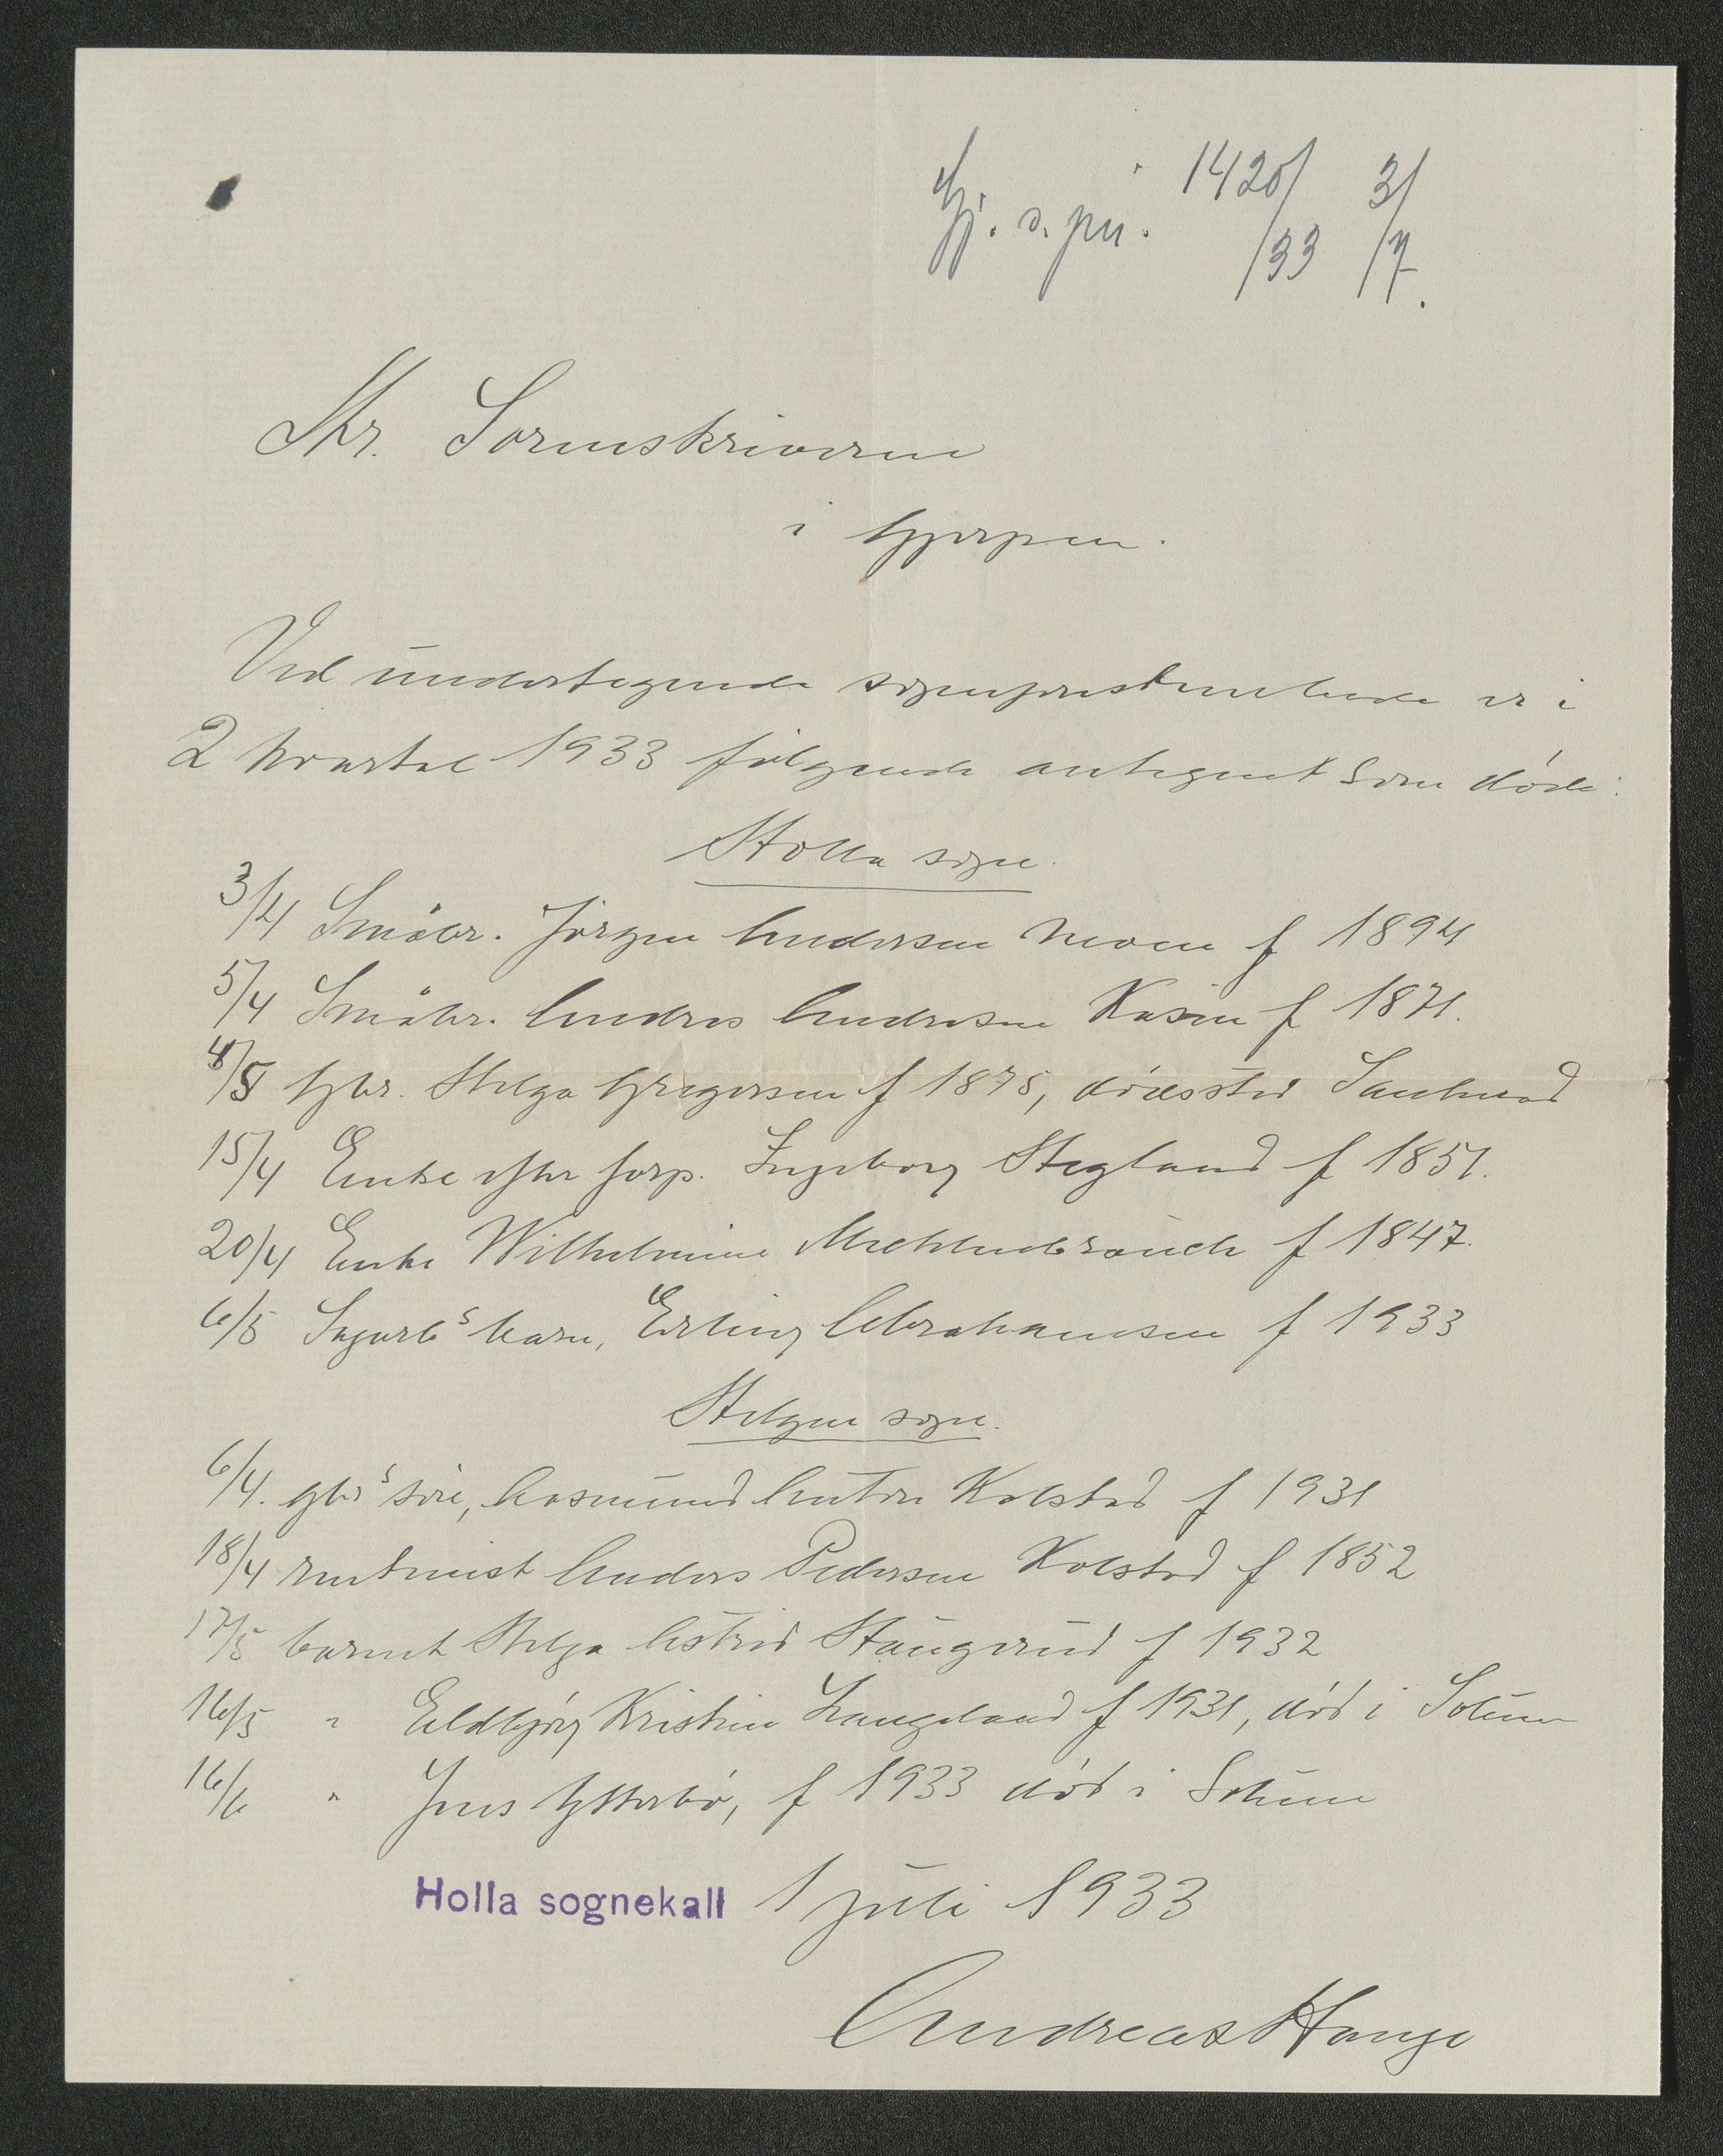 Gj. s. pn. 1420/33 3/7.
Hr. Sorenskriveren
i Gjerpen.
Ved undertegnede sogneprestembede er i
2 kvartal 1933 følgende antegnet som døde:
Holla sogn.
3/4 Småbr. Jörgen Andersen Moen f 1894
5/4 Småbr. Andres Andresen Kåsin f 1871.
4/5 Gbr. Helga Gregersen f 1875, dødssted Sauherad
15/4 Enke efter forp. Ingeborg Hegland f 1851.
20/4 Enke Wilhelmine Mehlenbrauch f 1847.
6/5 Sagarbs barn, Erling Abrahamsen f 1933
Helgen sogn.
6/4. gbrs søn, Aasmund Anton Kolstad f 1931
18/4 rentenist Anders Pedersen Kolstad f 1852
17/5 barnet Helga Astrid Haugerud f 1932
16/5 " Eldbjørg Kristine Langeland f 1931, död i Solum
16/6 " Jens Ytterbö, f 1933 död i Solum
Holla sognekall 1 juli 1933
Andreas Hauge